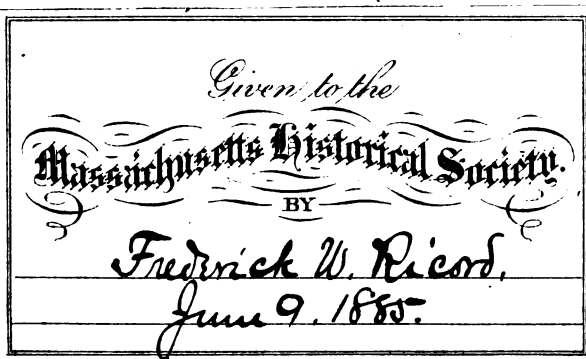 Given to the
Massachusetts Historical Society.
BY
Frederick W. Ricord,
June 9. 1885.